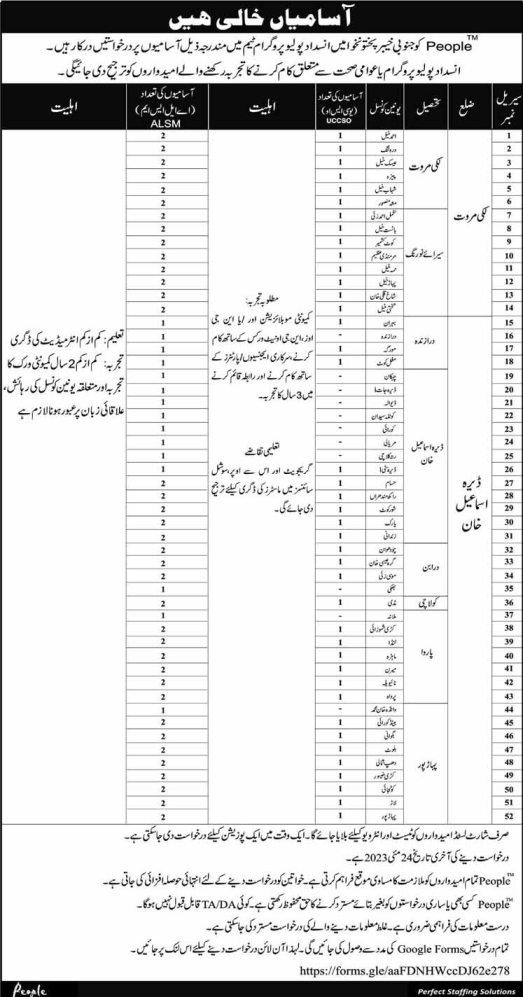 آسامیاں خالی ہیں
People™ کو جنوبی خیبر پختونخوا میں انسداد پولیو پروگرام ٹیم میں مندرجہ ذیل آسامیوں پر درخواستیں درکار ہیں۔
انسداد پولیو پروگرام یا عوامی صحت سے متعلق کام کرنے کا تجربہ رکھنے والے امیدواروں کو ترجیح دی جائیگی۔
سیریل نمبر ضلع تحصیل یونین کونسل آسامیوں کی تعداد (یو سی ایس او) UCCSO اہلیت آسامیوں کی تعداد (اے ایل ایس ایم) ALSM اہلیت
لکی مروت
لکی مروت
1 احمد خیل 1 2
2 1 2
3 1 2
4 1 2
5 شہاب خیل 1 2
6 1 2
سرائے نورنگ
7 1 2
8 1 2
9 کوٹ کشمیر 1 2
10 1 2
11 1 2
12 پہاڑ خیل 1 2
13 1 2
14 1 2
ڈیرہ اسماعیل خان
درازندہ
15 1 1
16 درازندہ 1 1
17 1 1
18 مغل کوٹ 1 1
ڈیرہ اسماعیل خان
19 - 1
20 - 1
21 - 1
22 - 1
23 - 1
24 - 1
25 - 1
26 1 1
27 حسام 1 2
28 1 2
29 شورکوٹ 1 2
30 یارک 1 2
31 1 2
درابن
32 چودھوان 1 2
33 1 2
34 موسیٰ زئی 1 2
35 - 1
کولاچی
36 1 2
37 - 1
پاروا
38 1 2
39 لنڈا 1 2
40 1 2
41 میرن 1 2
42 نائیویلہ 1 2
43 پروا 1 2
پہاڑپور
44 - 1
45 1 2
46 1 2
47 بلوٹ 1 2
48 1 2
49 1 2
50 1 2
51 لاڑ 1 2
52 پہاڑپور 1 2
مطلوبہ تجربہ:
کمیونٹی موبلائزیشن اور / یا این جی
اوز، این جی او نیٹ ورکس کے ساتھ کام
کرنے، سرکاری ایجنسیوں / پارٹنرز کے
ساتھ کام کرنے اور رابطہ قائم کرنے
میں 3 سال کا تجربہ۔
تعلیمی تقاضے
گریجویٹ اور اس سے اوپر، سوشل
سائنسز میں ماسٹرز کی ڈگری کیلئے ترجیح
دی جائے گی۔
تعلیم: کم از کم انٹرمیڈیٹ کی ڈگری
تجربہ: کم از کم 2 سال کمیونٹی ورک کا
تجربہ اور متعلقہ یونین کونسل کی رہائش،
علاقائی زبان پر عبور ہونا لازم ہے
صرف شارٹ لسٹڈ امیدواروں کو ٹیسٹ اور انٹرویو کیلئے بلایا جائے گا۔ ایک وقت میں ایک پوزیشن کیلئے درخواست دی جاسکتی ہے۔
درخواست دینے کی آخری تاریخ 24 مئی 2023 ہے۔
People™ تمام امیدواروں کو ملازمت کا مساوی موقع فراہم کرتی ہے۔ خواتین کو درخواست دینے کے لئے انتہائی حوصلہ افزائی کی جاتی ہے۔
People™ کسی بھی یا ساری درخواستوں کو بغیر بتائے مسترد کرنے کا حق محفوظ رکھتی ہے۔ کوئی TA/DA قابل قبول نہیں ہوگا۔
درست معلومات کی فراہمی ضروری ہے۔ غلط معلومات دینے والے کی درخواست مسترد کی جاسکتی ہے۔
تمام درخواستیں Google Forms کی مدد سے وصول کی جائیں گی۔ لہذا آن لائن درخواست دینے کیلئے اس لنک پر جائیں۔
https://forms.gle/aaFDNHWccDJ62e278
People Perfect Staffing Solutions